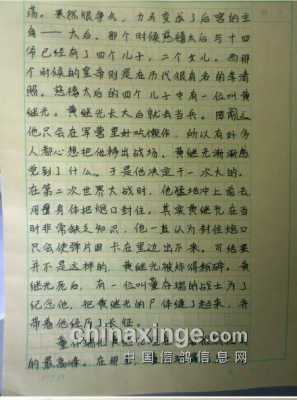 荡。果然很争气，力士变成了后宫的主
角——太后。那个时候慈禧太后与十四
体已经有了四个儿子，二个女儿。而那
个时候的皇帝则是在历代很有名的李清
照。慈禧太后的四个儿子中有一位叫黄
继光。黄继光长大后就去当兵。因
他只会在军营里好吃懒做，所以有好多
人都心想把他踢出战场。黄继光渐渐感
觉到了什么。于是他决定干一次大的。
在第二次世界大战时，他猛地冲上前去
用瘦身体把炮口封住。其实黄继光在当
时非常缺乏知识，他一直认为封住炮口
只会使弹片因卡在里边出不来。可结果
并不是这样的，黄继光被炸得粉碎。黄
继光死后，有一位叫董存瑞的战士为了
纪念他，把黄继光的尸体缝了起来，并
带着他经历了长征。
的最高峰。在那
chinaxinge.com
中国信鸽信息网